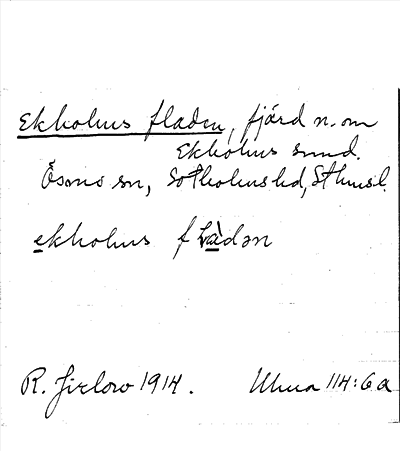 Ekholms fladen, fjärd n. om
Ekholms sund.
Ösmo sn, Sotholms hd, Sthmsl.
ekholms flàdən
R. Jirlow 1914. Uhua 114:6a